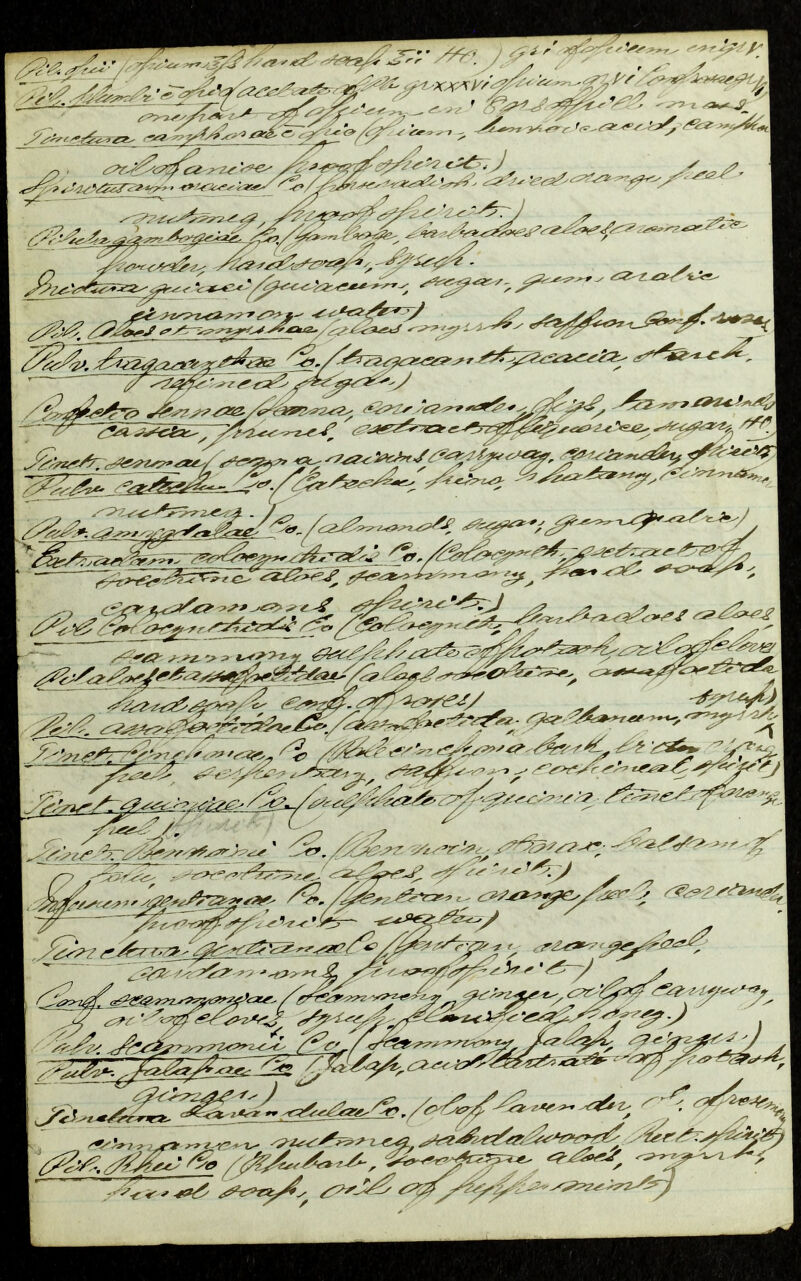 Pil. opii (opium ʒss hard soap ʒii HO.) gr i of opium in gr v
Pil. Plumbi c̄ opio (acetate of Pb gr xxxvi opium gr vi Conf. rosae
one part of opium in 8 parts of pill mass
Tinctura camphorae c̄ opio (opium, benzoic acid, camphor
oil of anise proof spirit.)
Spiritus armoraciae Co (horseradish dried orange peel
nutmeg, proof spirit.)
Pilula gambogiae Co. (gamboge, barbadoes aloes, aromatic
powder, hard soap, syrup.
Mistura guiaci (guiacum, sugar, gum arabic
cinnamon water)
Pil. Aloes et myrrhae (aloes myrrh, saffron Conf. roses
Pulv. tragacanthae Co. (tragacanth, acacia, starch,
refined sugar)
Confectio sennae (senna, coriander, figs, tamarinds
cassia, prunes, extract of liquorice, sugar, HO.
Tinct. sennae (senna raisins, carryway, coriander, spirit)
Pulv catechu Co. (Catechu, kino, rhatany, cinnamon
nutmeg.)
Pulv. amygdalae Co. (almonds, sugar, gum Arabic)
Extractum colocynthidis Co. (Colocynth, extract of
socotrine aloes, scammony, hard soap,
cardamoms spirit.)
Pil Colocynthidis Co (Colocynth, barbadoes aloes
scammony sulphate of potash, oil of cloves
Pil aloes et assafoetidae (aloes socotrine, assafoetida
hard soap, conf. of roses)
Pil. assafoetidae Co. (assafoetida, galbanum, myrrh, syrup)
Tinct. Cinchonae Co (Pale cinchona bark, bitter orange
peel, serpentary, saffron, cochineal, spirit)
Tinct. quiniae Co. (sulphate of quinia, tinct of orange
peel spirit)
Tinct. Benzoini Co. (Benzoin, storax, balsam of
tolu, socotrine aloes, spirit.)
Infusum gentianae Co. (gentian orange peel, coriander,
proof spirit water)
Tinctura gentianae Co (gentian orange peel,
cardamoms proof spirit)
Conf. scammoniae (scammony ginger, oil of carryway,
oil of cloves syrup, clarified honey.)
Pulv. Scammonii Co (Scammony, Jalap, ginger.)
Pulv. Jalapae Co (Jalap, acid tartrate of potash,
ginger.)
Tinctura Lavandulae Co. (ol of lavender, ol. of rosemary
cinnamon nutmeg, sandalwood Rect. spirit)
Pil. Rhei Co (Rhubarb, socotrine aloes, myrrh,
hard soap, oil of peppermint)